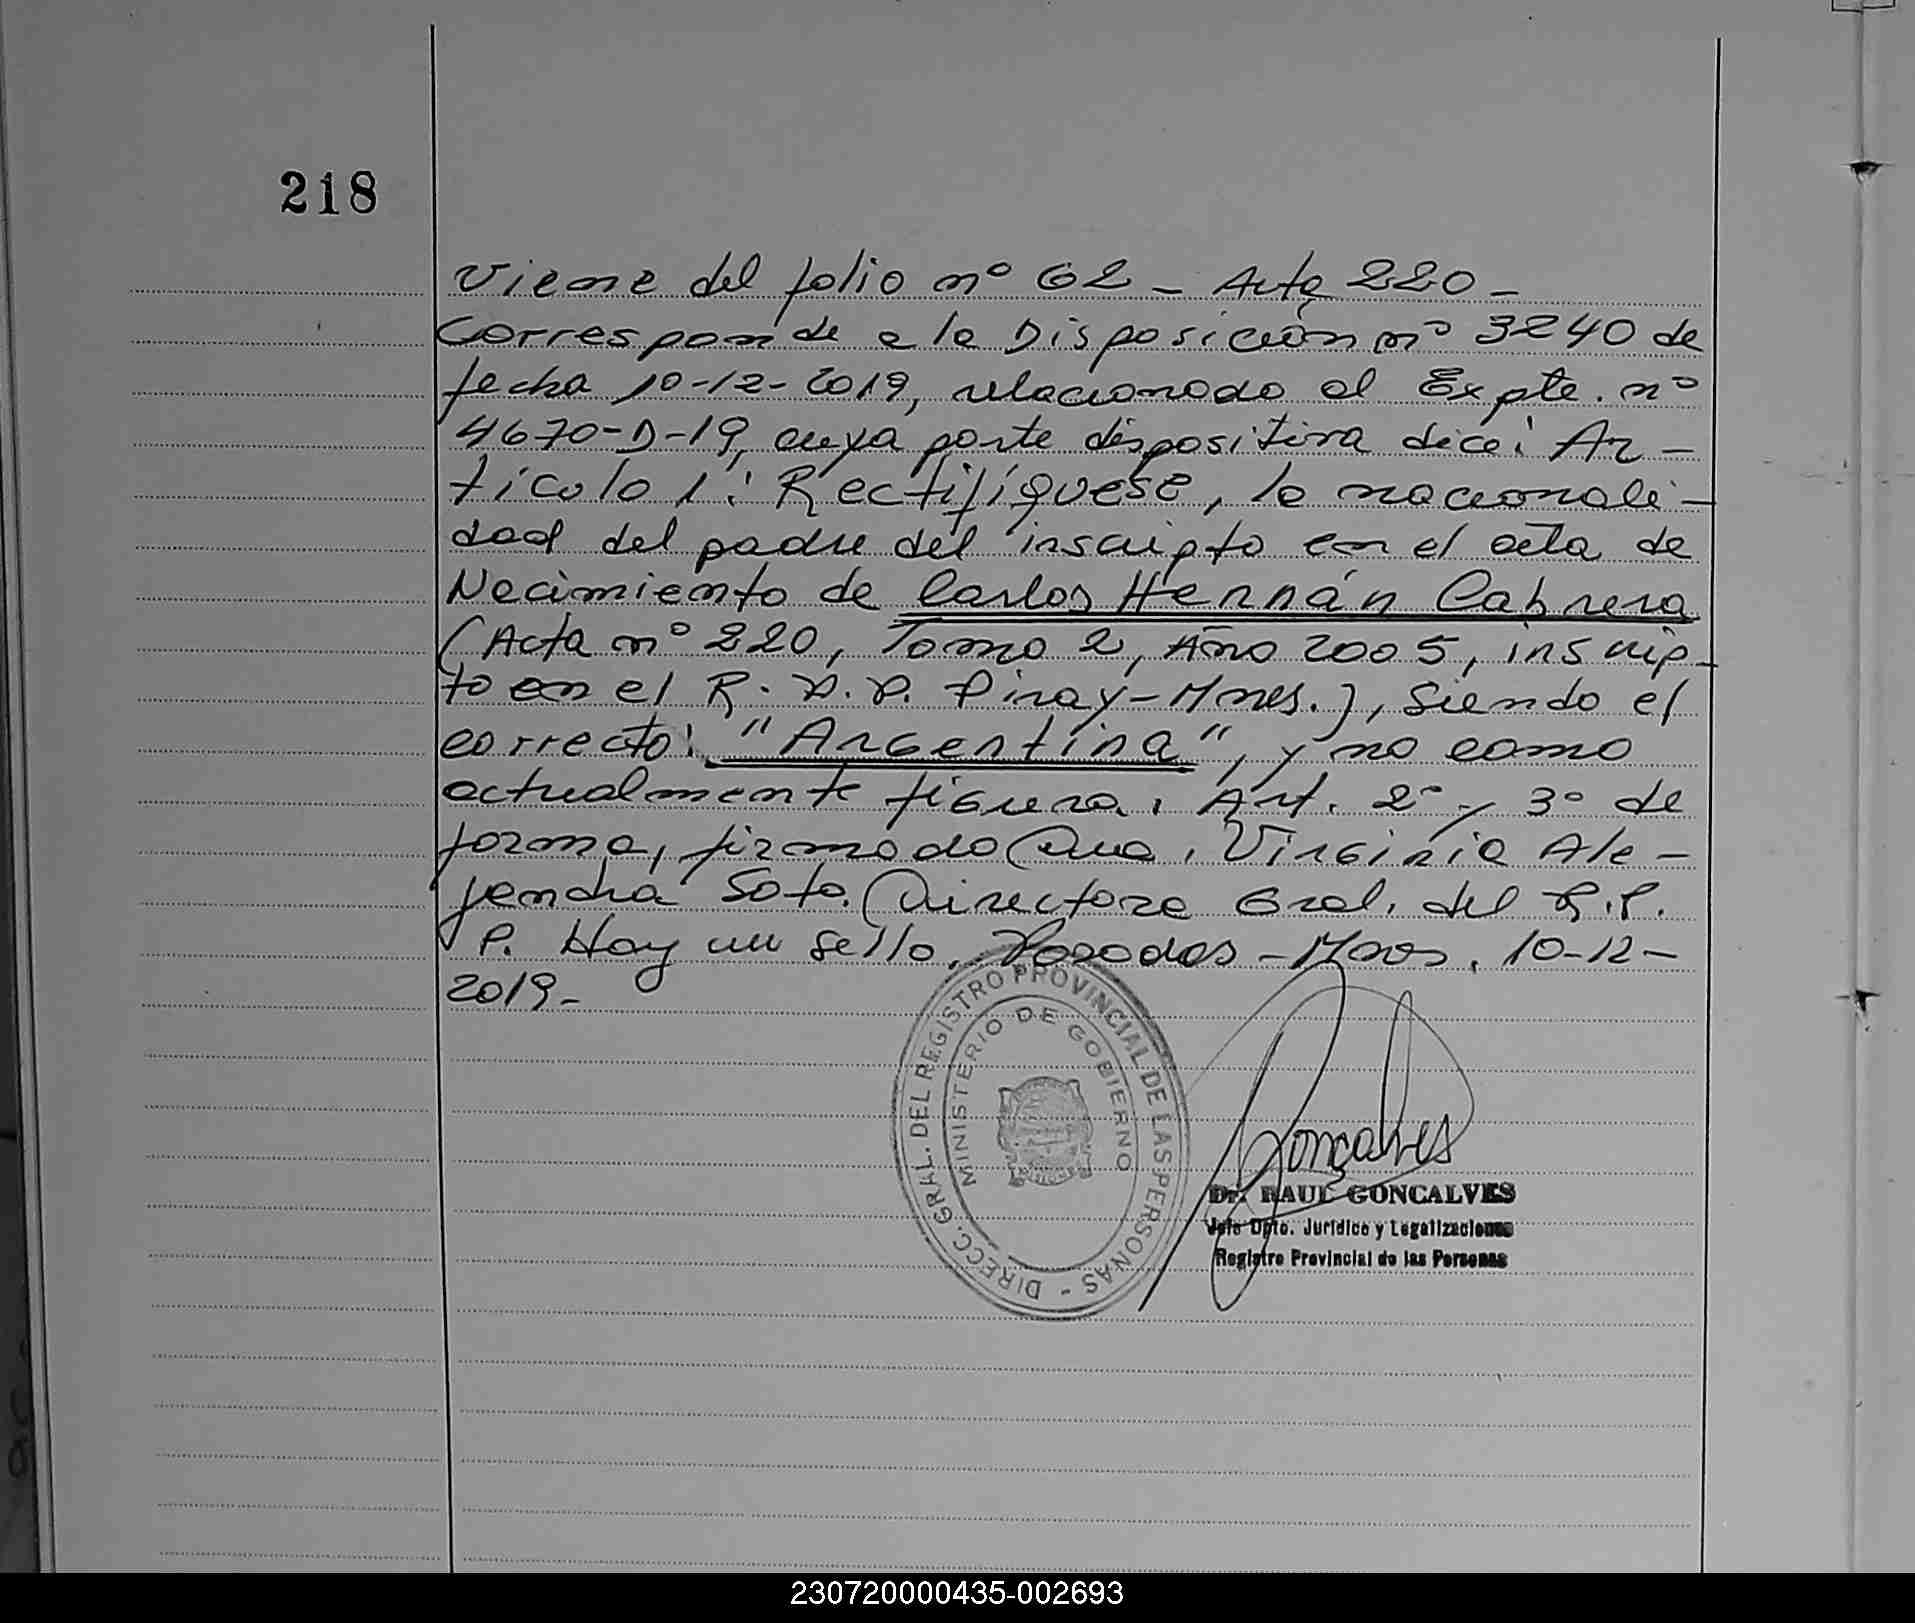 218
Viene del folio nº 62 - Acta 220 -
Corresponde a la Disposición nº 3240 de
fecha 10-12-2019, relacionado al Expte. nº
4670-D-19, cuya parte dispositiva dice: Ar-
tícolo 1: Rectifíquese, la nacionali-
dad del padre del inscripto en el acta de
Nacimiento de Carlos Hernán Cabrera
(Acta nº 220, Tomo 2, Año 2005, inscrip-
to en el R.D.P. Piray-Mnes.), siendo el
correcto: "Argentina", y no como
actualmente figura. Art. 2º y 3º de
forma, firmado Dra. Virginia Ale-
jandra Soto. Directora Gral. del R.P.
P. Hay un sello. Posadas - Mnes. 10-12-
2019-
DIRECC. GRAL. DEL REGISTRO PROVINCIAL DE LAS PERSONAS -
MINISTERIO DE GOBIERNO
Goncalves
Dr. RAUL GONCALVES
Jefe Dpto. Jurídico y Legalizaciones
Registro Provincial de las Personas
230720000435-002693